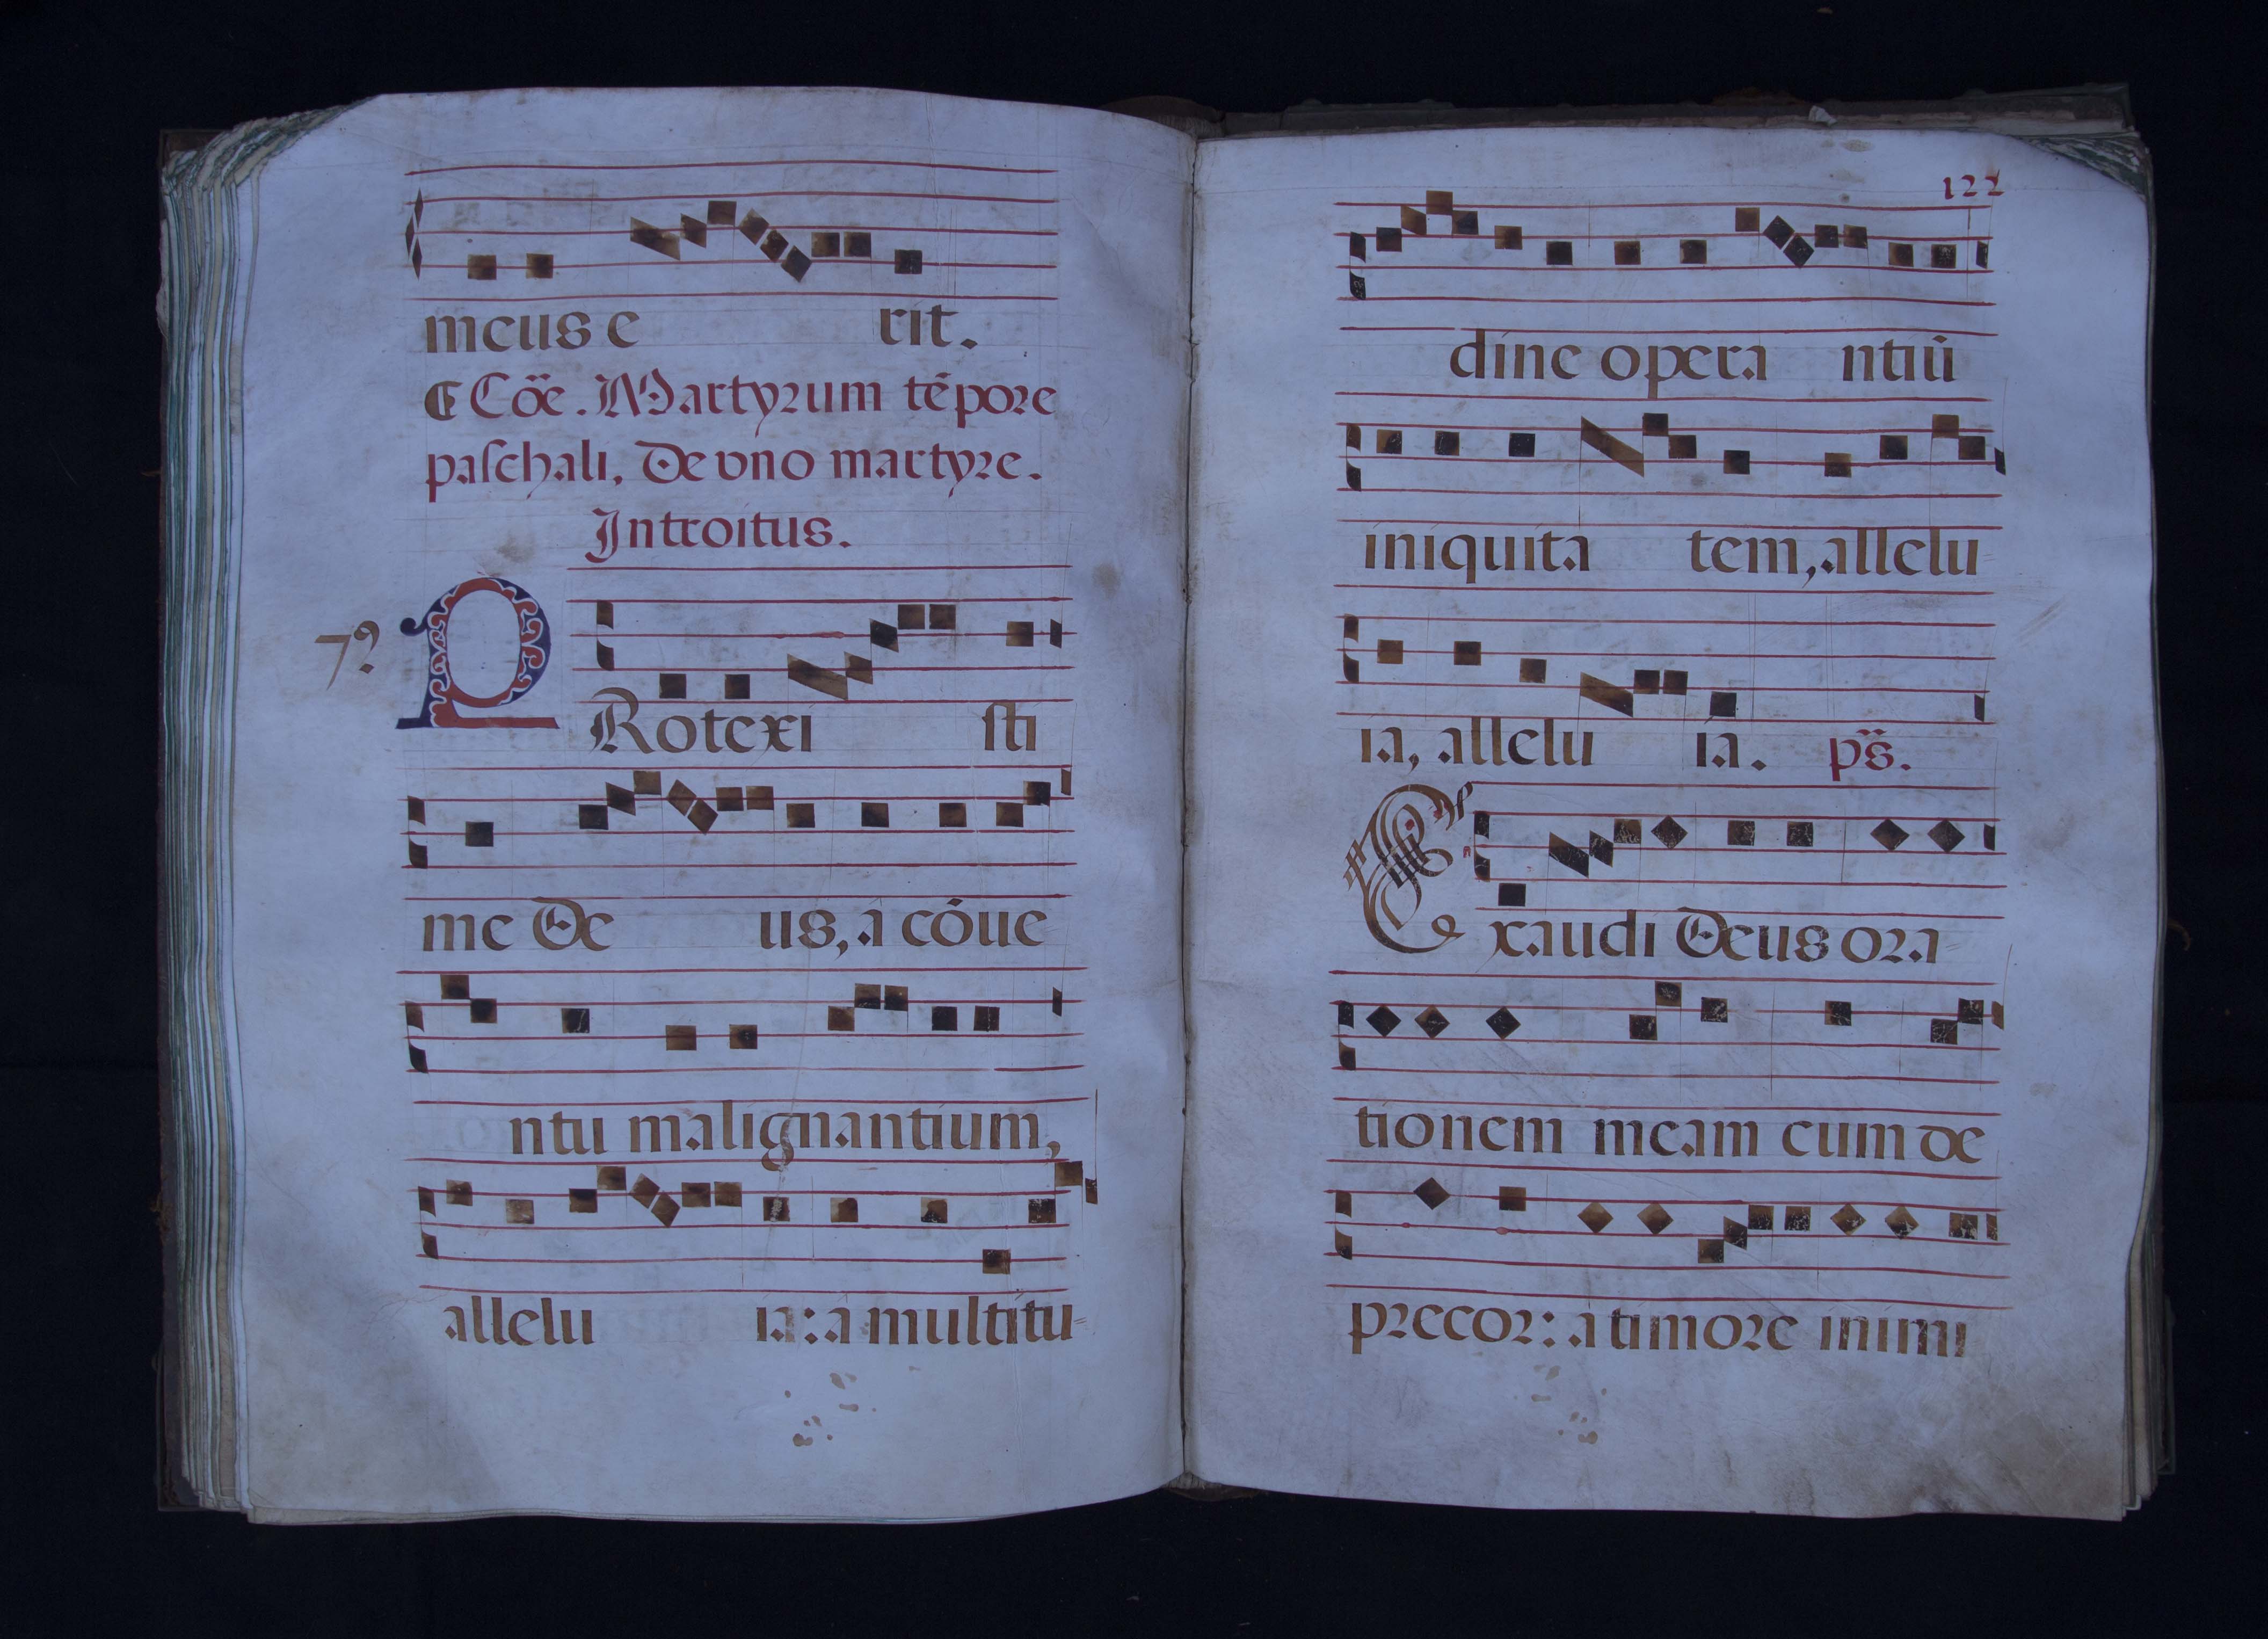 meus e rit.
¶ Cõe. Martyrum tẽpore
paschali, De vno martyre.
Introitus.
7º
PRotexi sti
me De us, á cõue
ntu malignantium,
allelu ia: á multitu-
122
dine opera ntiũ
iniquita tem, allelu-
ia, allelu ia. ps.
Exaudi Deus ora-
tionem meam cum de
precor: à timore inimi